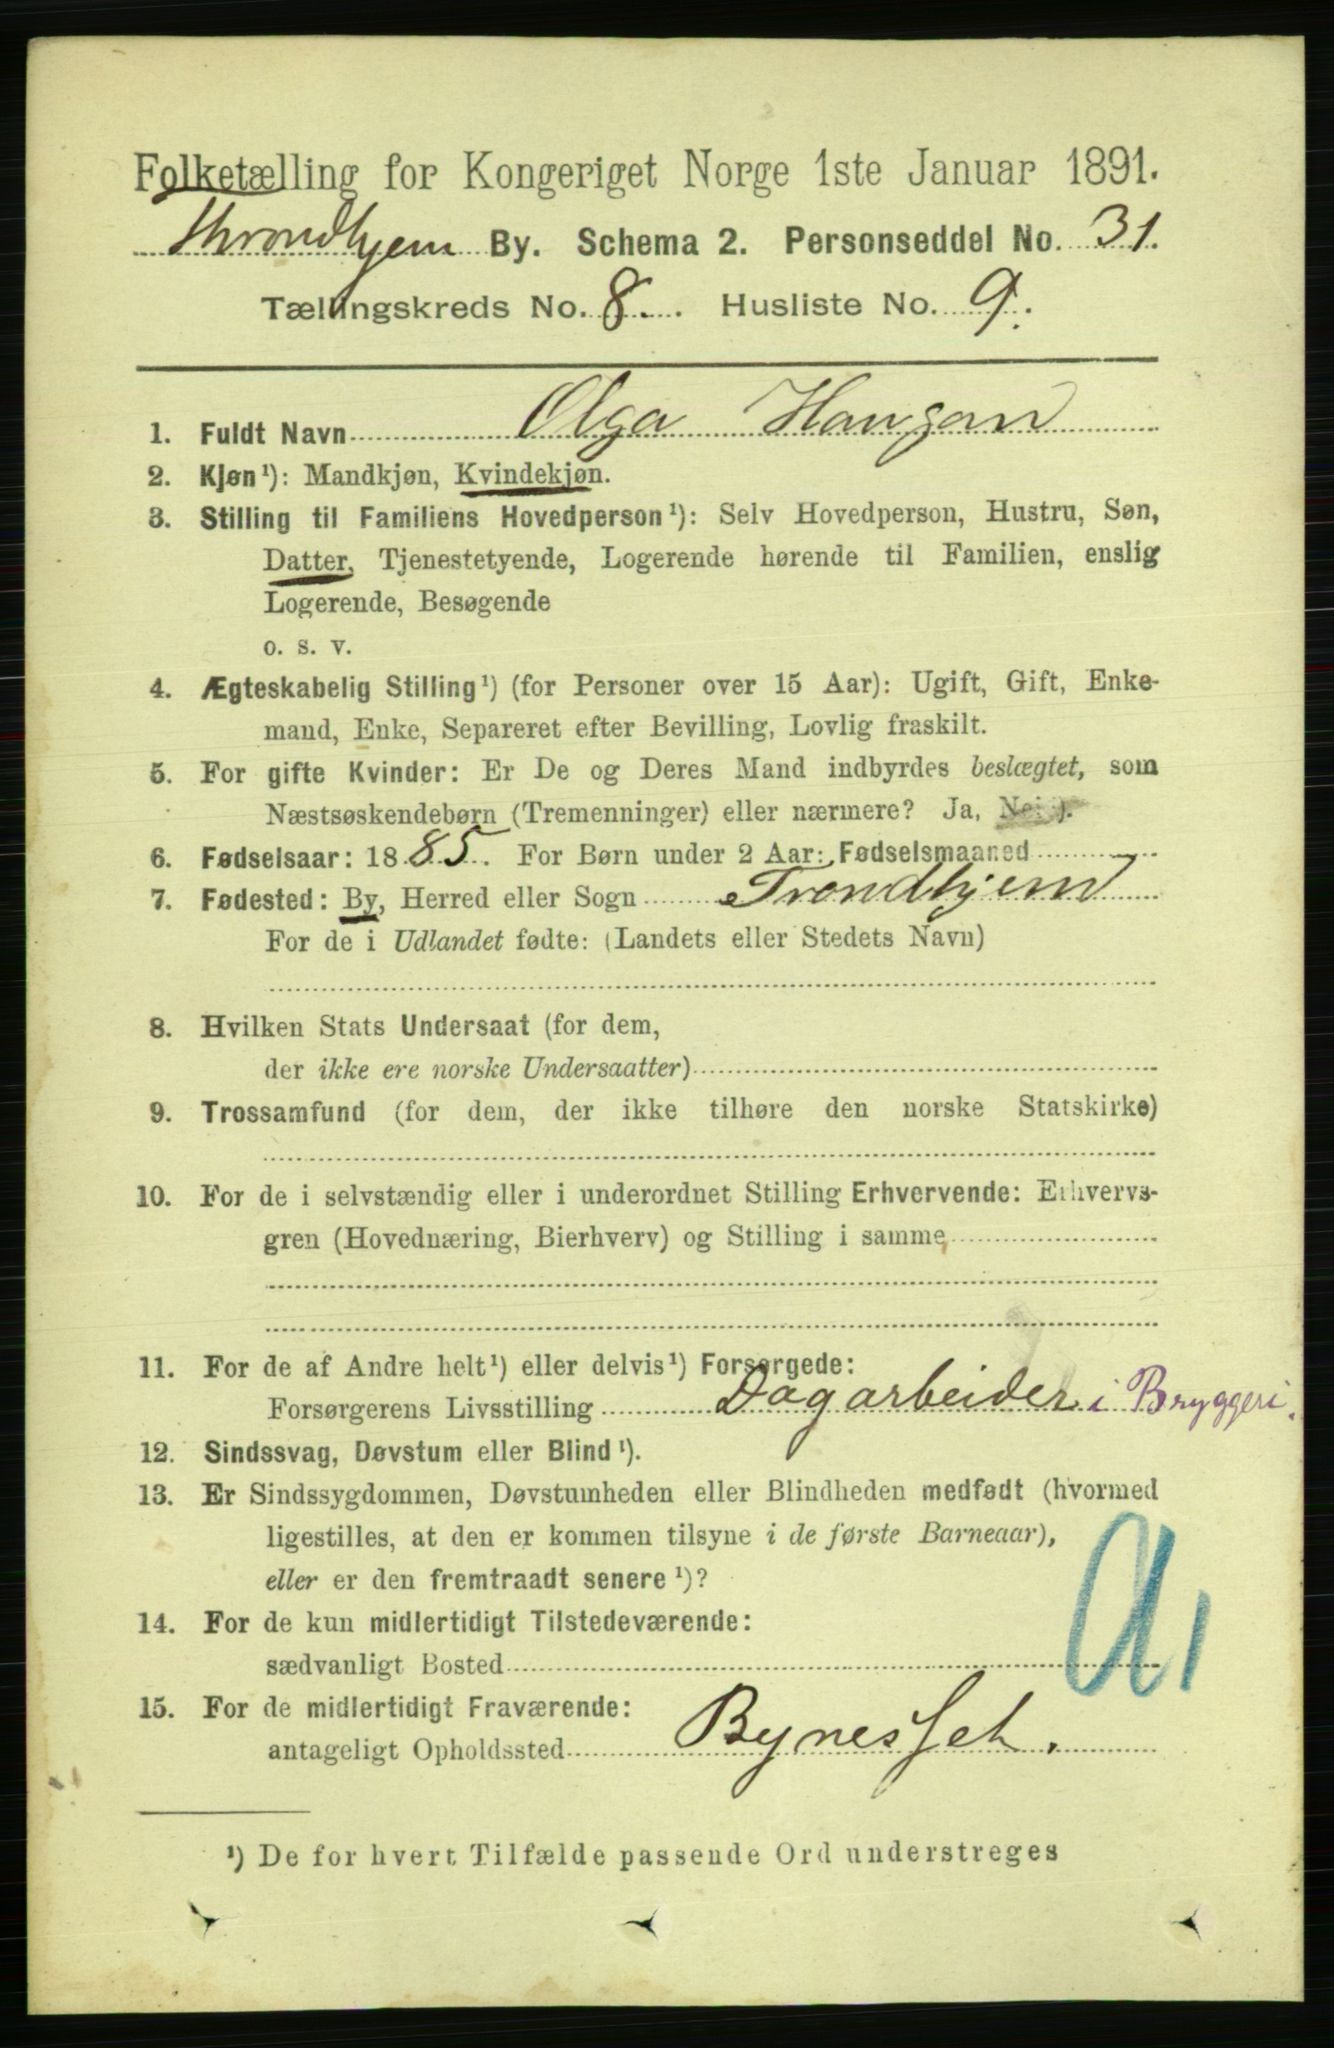 Folketælling for Kongeriget Norge 1ste Januar 1891.
Throndhjem By. Schema 2. Personseddel No. 31.
Tællingskreds No. 8. Husliste No. 9.
1. Fuldt Navn Olga Haugan
2. Kjøn¹): Mandkjøn, Kvindekjøn.
3. Stilling til Familiens Hovedperson¹): Selv Hovedperson, Hustru, Søn,
Datter, Tjenestetyende, Logerende hørende til Familien, enslig
Logerende, Besøgende
o. s. v.
4. Ægteskabelig Stilling¹) (for Personer over 15 Aar): Ugift, Gift, Enke-
mand, Enke, Separeret efter Bevilling, Lovlig fraskilt.
5. For gifte Kvinder: Er De og Deres Mand indbyrdes beslægtet, som
Næstsøskendebørn (Tremenninger) eller nærmere? Ja, Nei ¹).
6. Fødselsaar: 1885. For Børn under 2 Aar: Fødselsmaaned
7. Fødested: By, Herred eller Sogn Trondhjem
For de i Udlandet fødte: (Landets eller Stedets Navn)
8. Hvilken Stats Undersaat (for dem,
der ikke ere norske Undersaatter)
9. Trossamfund (for dem, der ikke tilhøre den norske Statskirke)
10. For de i selvstændig eller i underordnet Stilling Erhvervende: Erhvervs-
gren (Hovednæring, Bierhverv) og Stilling i samme
11. For de af Andre helt¹) eller delvis¹) Forsørgede:
Forsørgerens Livsstilling Dagarbeider i Bryggeri.
12. Sindssvag, Døvstum eller Blind¹).
13. Er Sindssygdommen, Døvstumheden eller Blindheden medfødt (hvormed
ligestilles, at den er kommen tilsyne i de første Barneaar),
eller er den fremtraadt senere¹)?
14. For de kun midlertidigt Tilstedeværende:
sædvanligt Bosted
15. For de midlertidigt Fraværende:
antageligt Opholdssted Bynesset.
¹) De for hvert Tilfælde passende Ord understreges